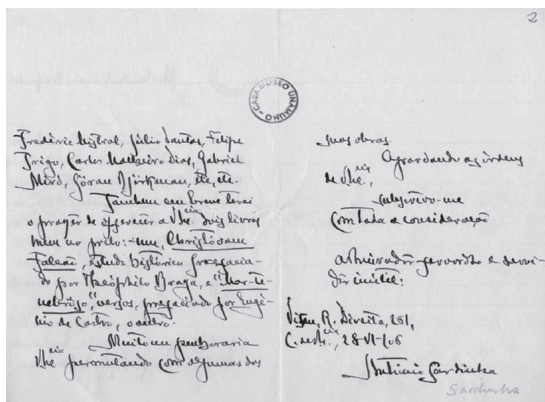 2
CASA MUSEO UNAMUNO
Frédéric Mistral, Júlio Dantas, Felipe
Trigo, Carlos Malheiro Dias, Gabriel
Miró, Göran Björkman, etc, etc.
Tambem em breve terei
o prazer de offerecer a V.ª Ex.cia dois livros
meus no prélo: um, Christovam
Falcão, estudo histórico prefacia-
do por Theóphilo Braga, e "Mar-te-
nebroso", versos, prefaciado por Eugé-
nio de Castro, o outro.
Muito me penhoraria
V.ª Ex.cia permutando com algumas das
suas obras.
Agrardando as órdens
de V.ª Ex.cia,
subscrevo-me
com toda a consideração
admirador fervoroso e servi-
dor inutil:
R. Direita, 251,
28-VI-1906
António Sardinha
Sardinha